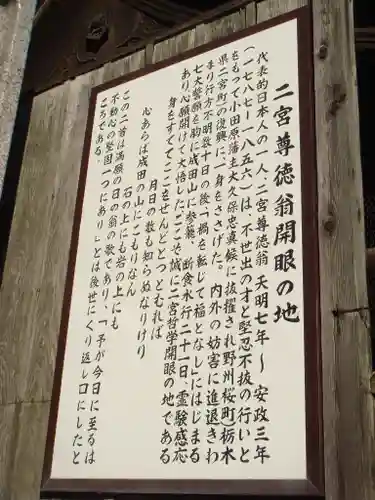 二宮尊徳翁開眼の地
代表的日本人の一人、二宮尊徳翁 天明七年～安政三年
（一七八七－一八五六）は、不世出の才と堅忍不抜の行いと
をもって小田原藩主大久保忠真候に抜擢され野州桜町（栃木
県二宮町）の復興に一身をささげた。内外の妨害に進退きわ
まり行方不明数十日の後、「禍を転じて福となしにはじまる
七大誓願を胸に成田山に参籠、断食水行二十一日、霊験感応
あり心願開けて大悟したここそ、誠に二宮哲学開眼の地である
身をすててここをせんどとつとむれば
月日の数も知らぬなりけり
心あらば成田の山にこもりなん
石の上にも岩の上にも
この二首は満願の日の翁の歌であり、「予が今日に至るは
不動心の堅固一つにあり」とは後世にくり返し口にしたと
ころである。